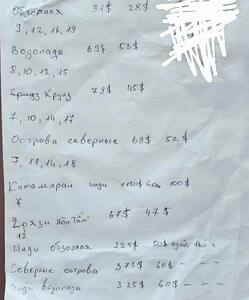 Обзорная 31$ 28$
9, 12, 16, 19
Водопады 69$ 53$
8, 10, 12, 15
Круиз 79$ 45$
7, 10, 14, 17
Острова северные 68$ 52$
7, 11, 14, 18
Катамаран инди 1150$ 100$
Грязи 67$ 47$
12
Инди обзорная 225$ 50$
Северные острова 375$ 60$ - - -
Инди водопады 325$ 60$ - - -